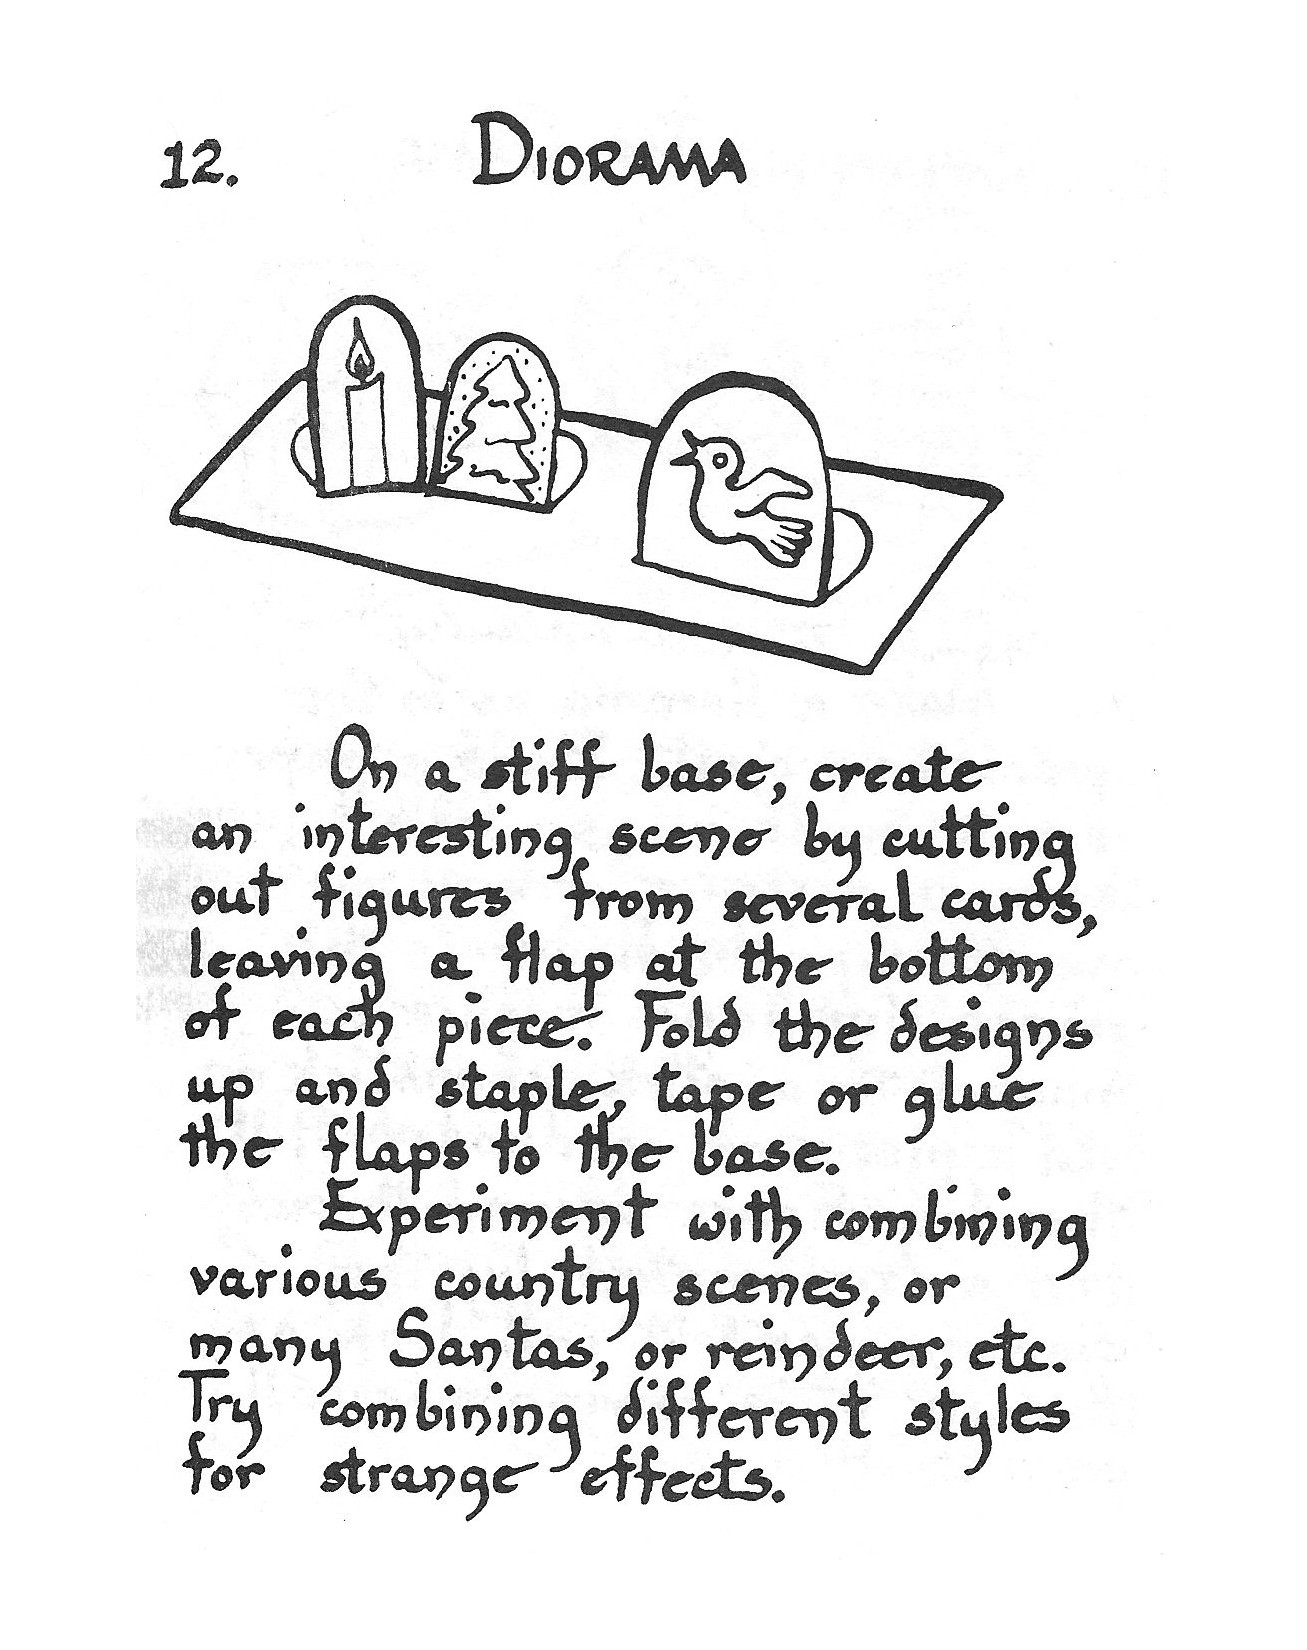 12.
DIORAMA
On a stiff base, create
an interesting scene by cutting
out figures from several cards,
leaving a flap at the bottom
of each piece. Fold the designs
up and staple, tape or glue
the flaps to the base.
Experiment with combining
various country scenes, or
many Santas, or reindeer, etc.
Try combining different styles
for strange effects.